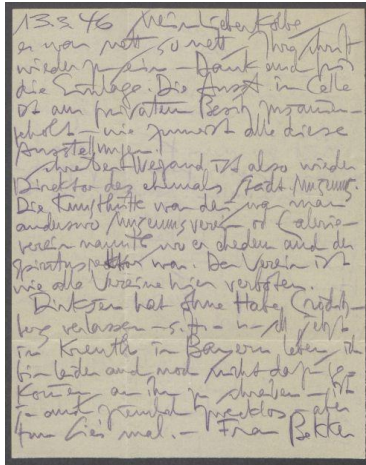 13.3.46 Mein lieber Kolbe
es war nett, so nett Ihre Schrift
wieder zu sein - Dank auch für
die Einlage. Die Ausst in Celle
ist am privatem Besitz zusammen-
geholt - wie zumeist alle diese
Ausstellungen!
Schreiber Wegand ist also wieder
Direktor des ehemals Stadt. Museums.
Die Kunsthütte war der was man
anderswo Museumsverein od Galerie-
verein nannte wo er ehedem auch der
war. Der Verein ist
wie alle Vereine hier verboten.
Dirksen hat ohne Habe Gröditz-
berg verlassen - s. H. - u - jetzt
in Kreuth in Bayern leben ich
bin leider auch noch nicht dazu ge-
kommen an ihn zu schreiben - ist
ja auch ziemlich zwecklos - aber
tun Sies mal. - Frau Bekker